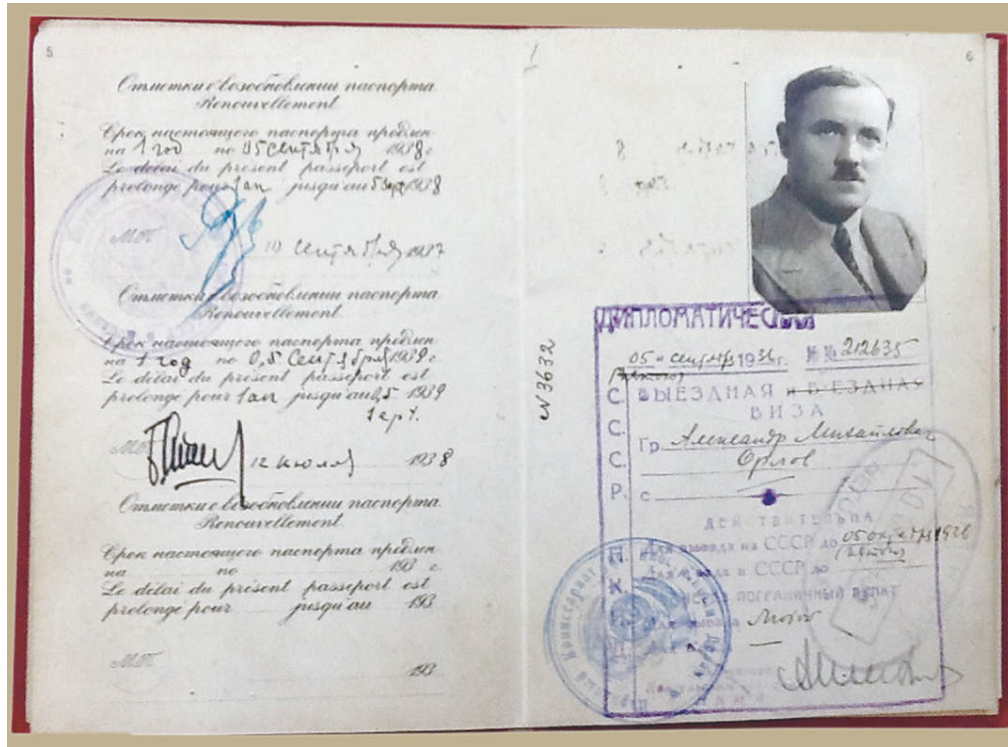 5
Отметки о возобновлении паспорта
Renouvellement
Срок настоящего паспорта продлен
на 1 год по 05 Сентября 1938 г
Le délai du présent passeport est
prolongé pour 1 an jusqu'au 5 sept 1938
МП
10 Сентября 1937
Отметки о возобновлении паспорта
Renouvellement
Срок настоящего паспорта продлен
на 1 год по 0,5 Сентября 1939 г
Le délai du présent passeport est
prolongé pour 1 an jusqu'au 5 1939
Sept.
МП
12 июля 1938
Отметки о возобновлении паспорта
Renouvellement
Срок настоящего паспорта продлен
на по 193 г
Le délai du présent passeport est
prolongé pour jusqu'au 193
МП
193
6
N 3632
ДИПЛОМАТИЧЕСКАЯ
05 сентяб 1936 г. № № 212635
(пятого)
СССР
ВЫЕЗДНАЯ И ВЪЕЗДНАЯ
ВИЗА
Гр. Александр Михайлович
Орлов
с
ДЕЙСТВИТЕЛЬНА
Для выезда из СССР до 05 октября 1936
(пятого)
Для въезда в СССР до
ЧЕРЕЗ ПОГРАНИЧНЫЙ ПУНКТ
Для выезда
Народный Комиссариат